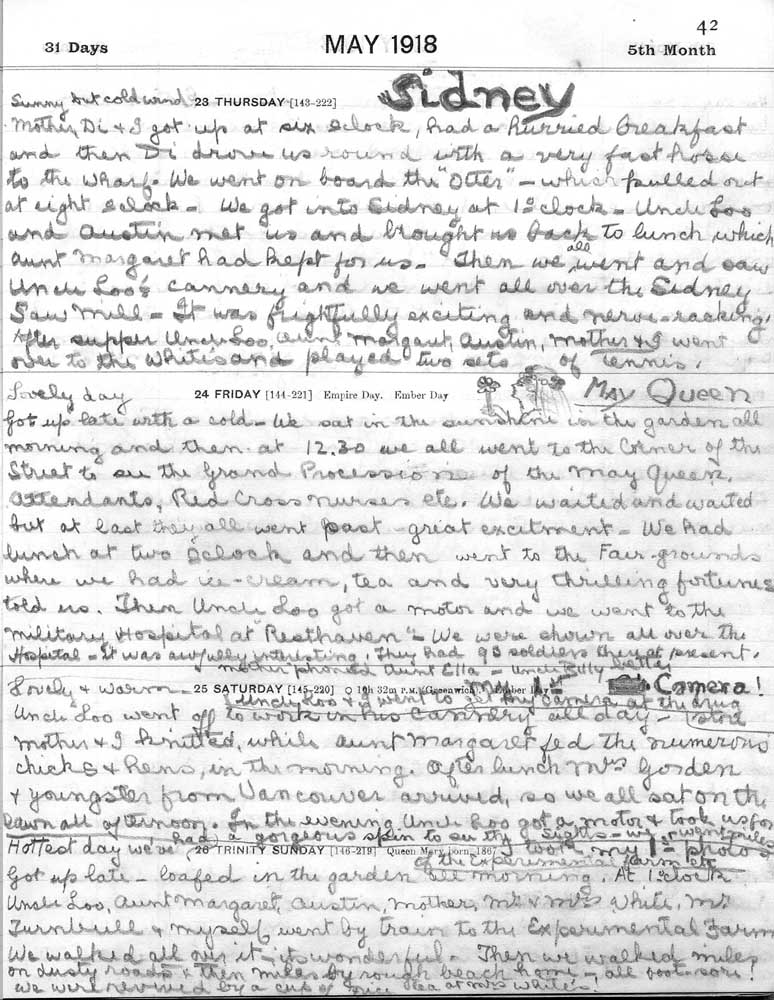 42
31 Days MAY 1918 5th Month
Sunny but cold wind 23 THURSDAY [143-222] Sidney
Mother, Di & I got up at six oclock, had a hurried breakfast
and then Di drove us round with a very fast horse
to the wharf. We went on board the "Otter" - which pulled out
at eight oclock - We got into Sidney at 1 oclock - Uncle Loo
and Austin met us and brought us back to lunch which
aunt Margaret had kept for us - Then we all went and saw
Uncle Loo's cannery and we went all over the Sidney
Saw Mill - It was frightfully exciting and nerve-racking!
After supper Uncle Loo, aunt Margaret, Austin, mother & I went
over to the Whites and played two sets of tennis.
Lovely day 24 FRIDAY [144-221] Empire Day. Ember Day May Queen
Got up late with a cold - We sat in the sunshine in the garden all
morning and then at 12.30 we all went to the Corner of the
Street to see the Grand Procession of the May Queen,
attendants, Red Cross nurses etc. We waited and waited
but at last they all went past - great excitment - We had
lunch at two oclock and then went to the Fair-grounds
where we had ice-cream, tea and very thrilling fortunes
told us. Then Uncle Loo got a motor and we went to the
Military Hospital at "Resthaven" - We were shown all over the
Hospital - it was awfully interesting! They had 90 soldiers there at present.
& mother phoned Aunt Ella - Uncle Billy better
Lovely & warm 25 SATURDAY [145-220] 10h 32m P.M. (Greenwich) Ember Day My 1st Camera!
Uncle Loo & I went to get my camera at the drug store
Uncle Loo went off to work in his cannery all day -
Mother & I knitted, while aunt Margaret fed the numerous
chicks & hens, in the morning. After lunch Mrs Gorden
& youngster from Vancouver arrived, so we all sat on the
lawn all afternoon. In the evening Uncle Loo got a motor & took us for
a gorgeous spin to see the sights - we went miles
Hottest day we've had 26 TRINITY SUNDAY [146-219] Queen Mary born, 1867 I took my 1st photos
of the Experimental farm etc
Got up late - loafed in the garden all morning. At 1 oclock
Uncle Loo, Aunt Margaret, Austin, Mother, Mr & Mrs White, Mr
Turnbull & myself went by train to the Experimental Farm
We walked all over it - its wonderful - Then we walked miles
on dusty roads & then miles by rough beach home - all foot-sore!
We were revived by a cup of nice tea at Mrs White's!